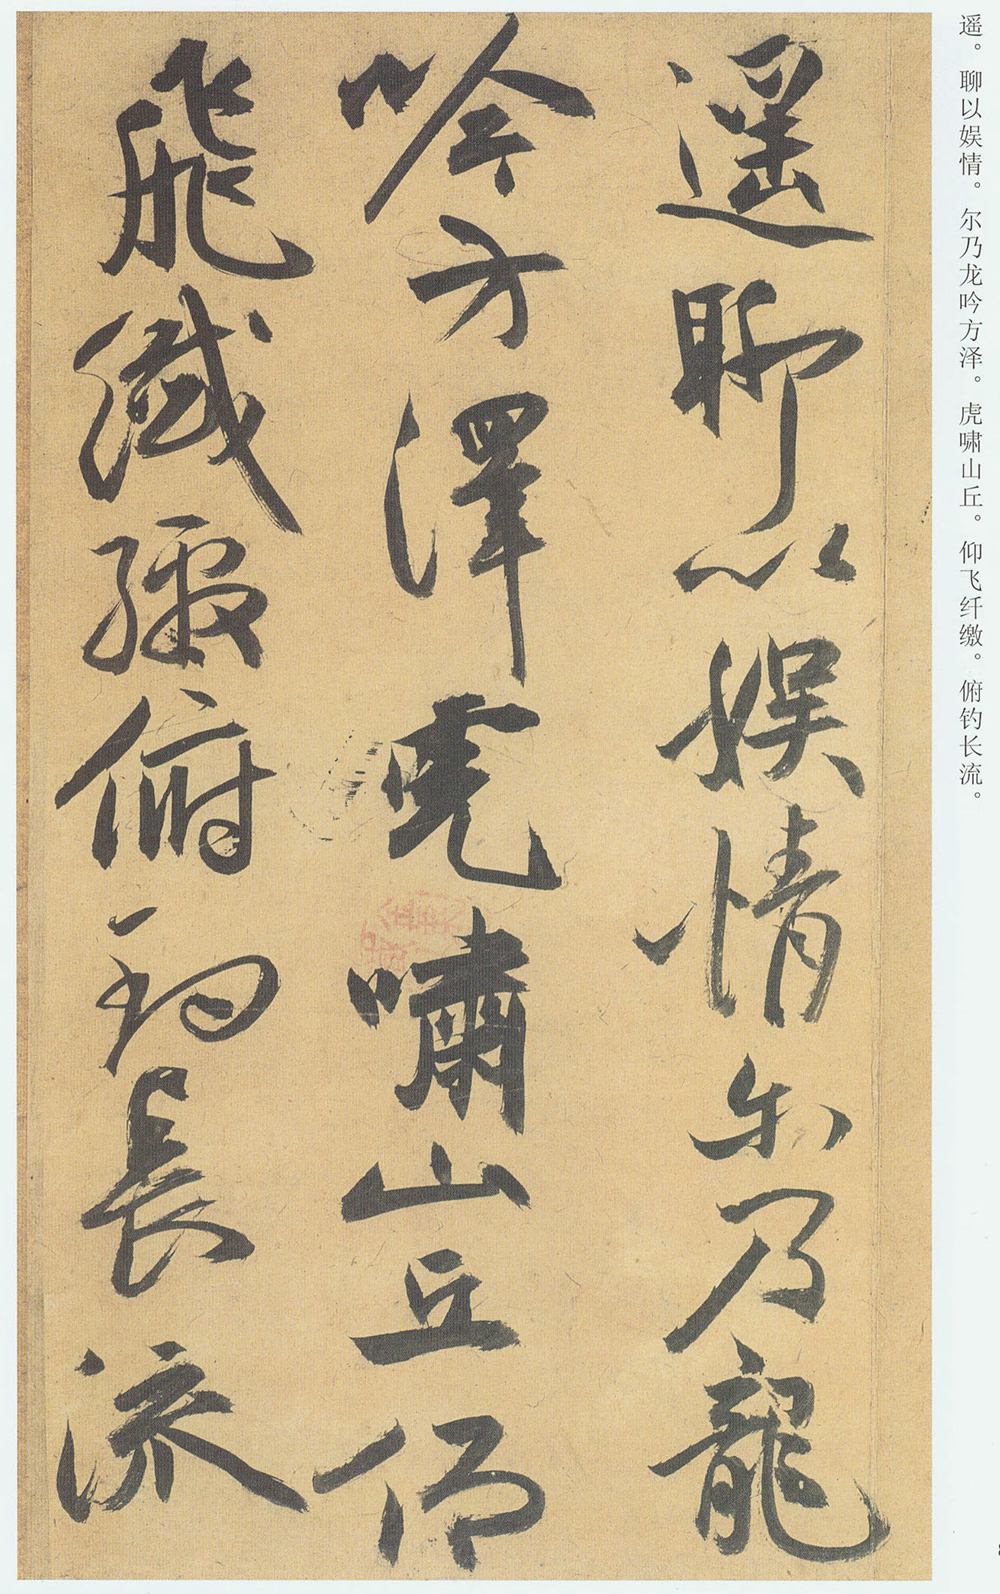 遥聊以娱情尔乃龍
吟方澤虎嘯山丘仰
飛纖缴俯钓長流
遥。聊以娱情。尔乃龙吟方泽。虎啸山丘。仰飞纤缴。俯钓长流。